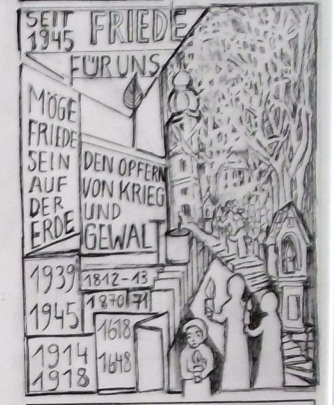 SEIT
1945
FRIEDE
FÜR UNS
MÖGE
FRIEDE
SEIN
AUF
DER
ERDE
DEN OPFERN
VON KRIEG
UND
GEWALT
1939
1945
1812-13
1870 71
1618
1648
1914
1918